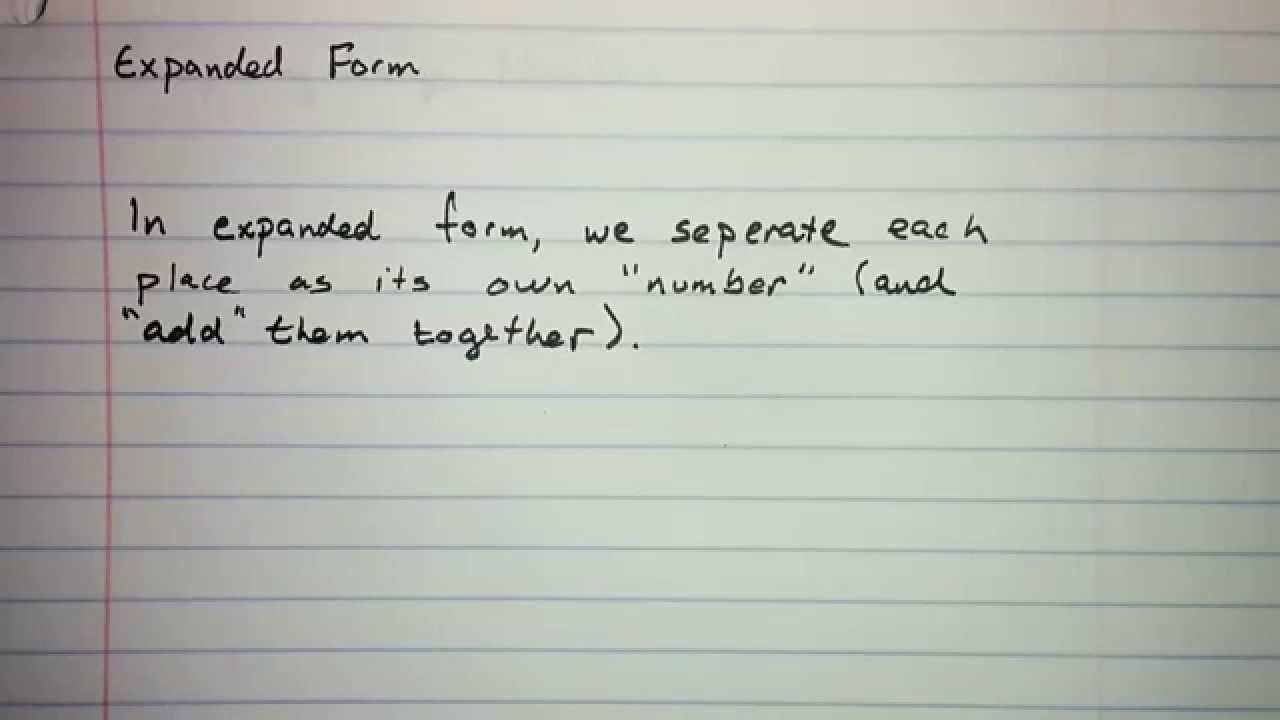 Expanded Form
In expanded form, we seperate each
place as its own "number" (and
"add" them together).